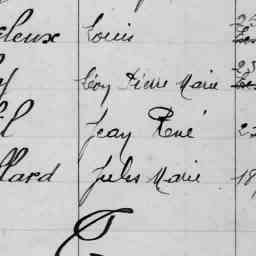 deux Louis
y Léon Pierre Marie
il Jean René 22
llard Jules Marie 18